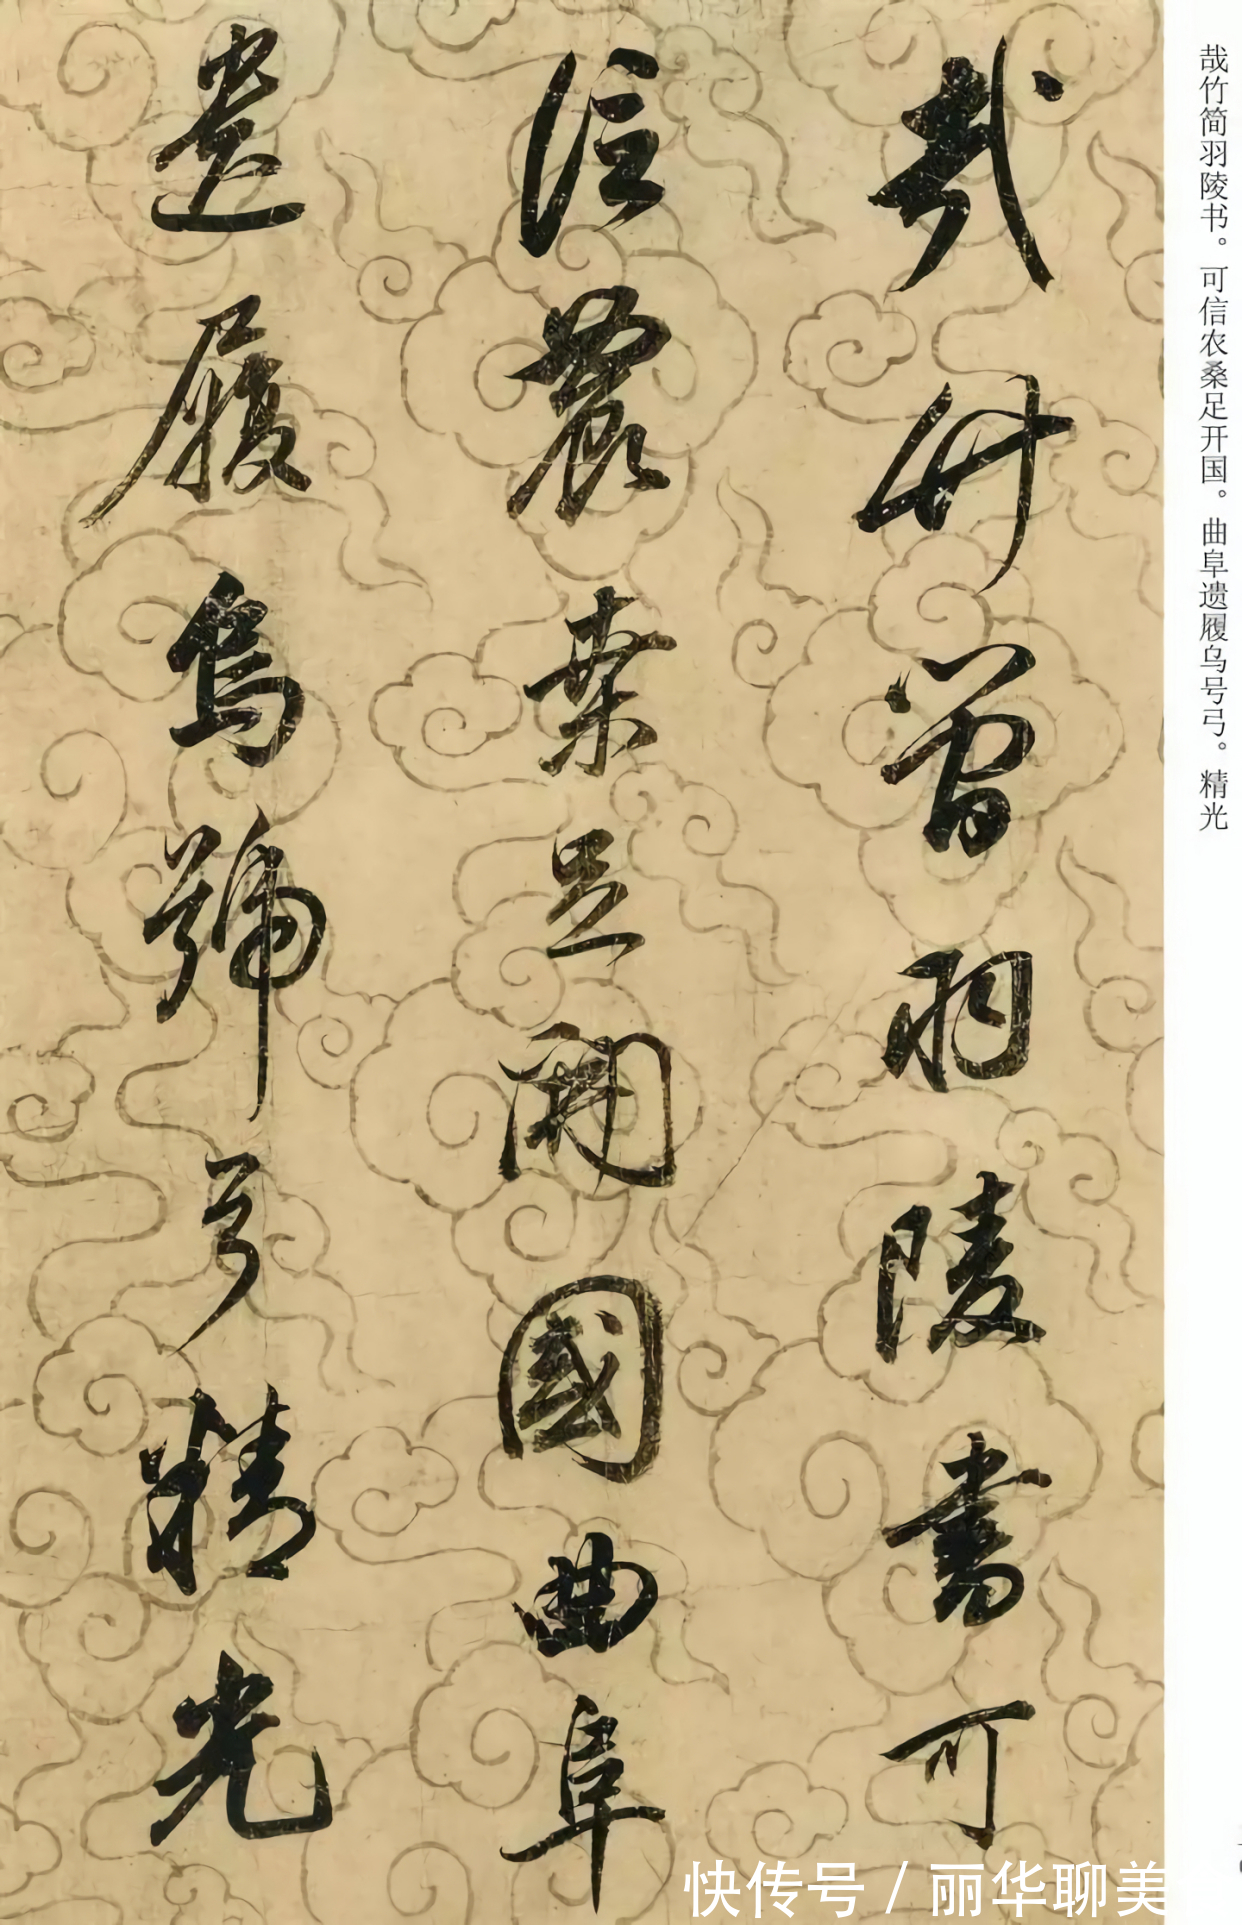 哉竹简羽陵书。可信农桑足开国。曲阜遗履乌号弓。精光
哉竹簡羽陵書可
信農桑足開國曲阜
遺履烏號弓精光
快传号/丽华聊美